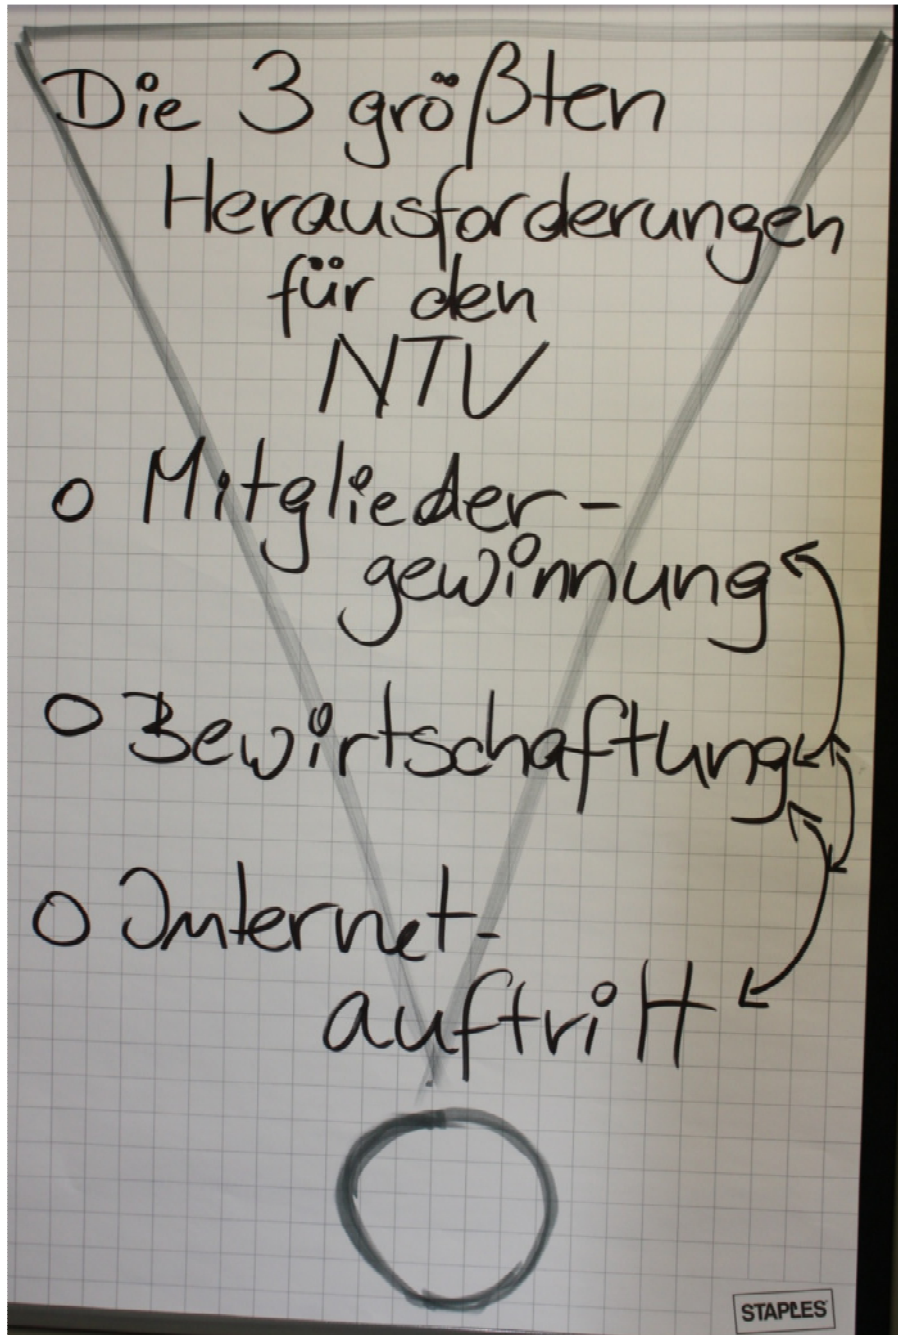 Die 3 größten
Herausforderungen
für den
NTV
o Mitglieder-
gewinnung
o Bewirtschaftung
o Internet-
auftritt
STAPLES